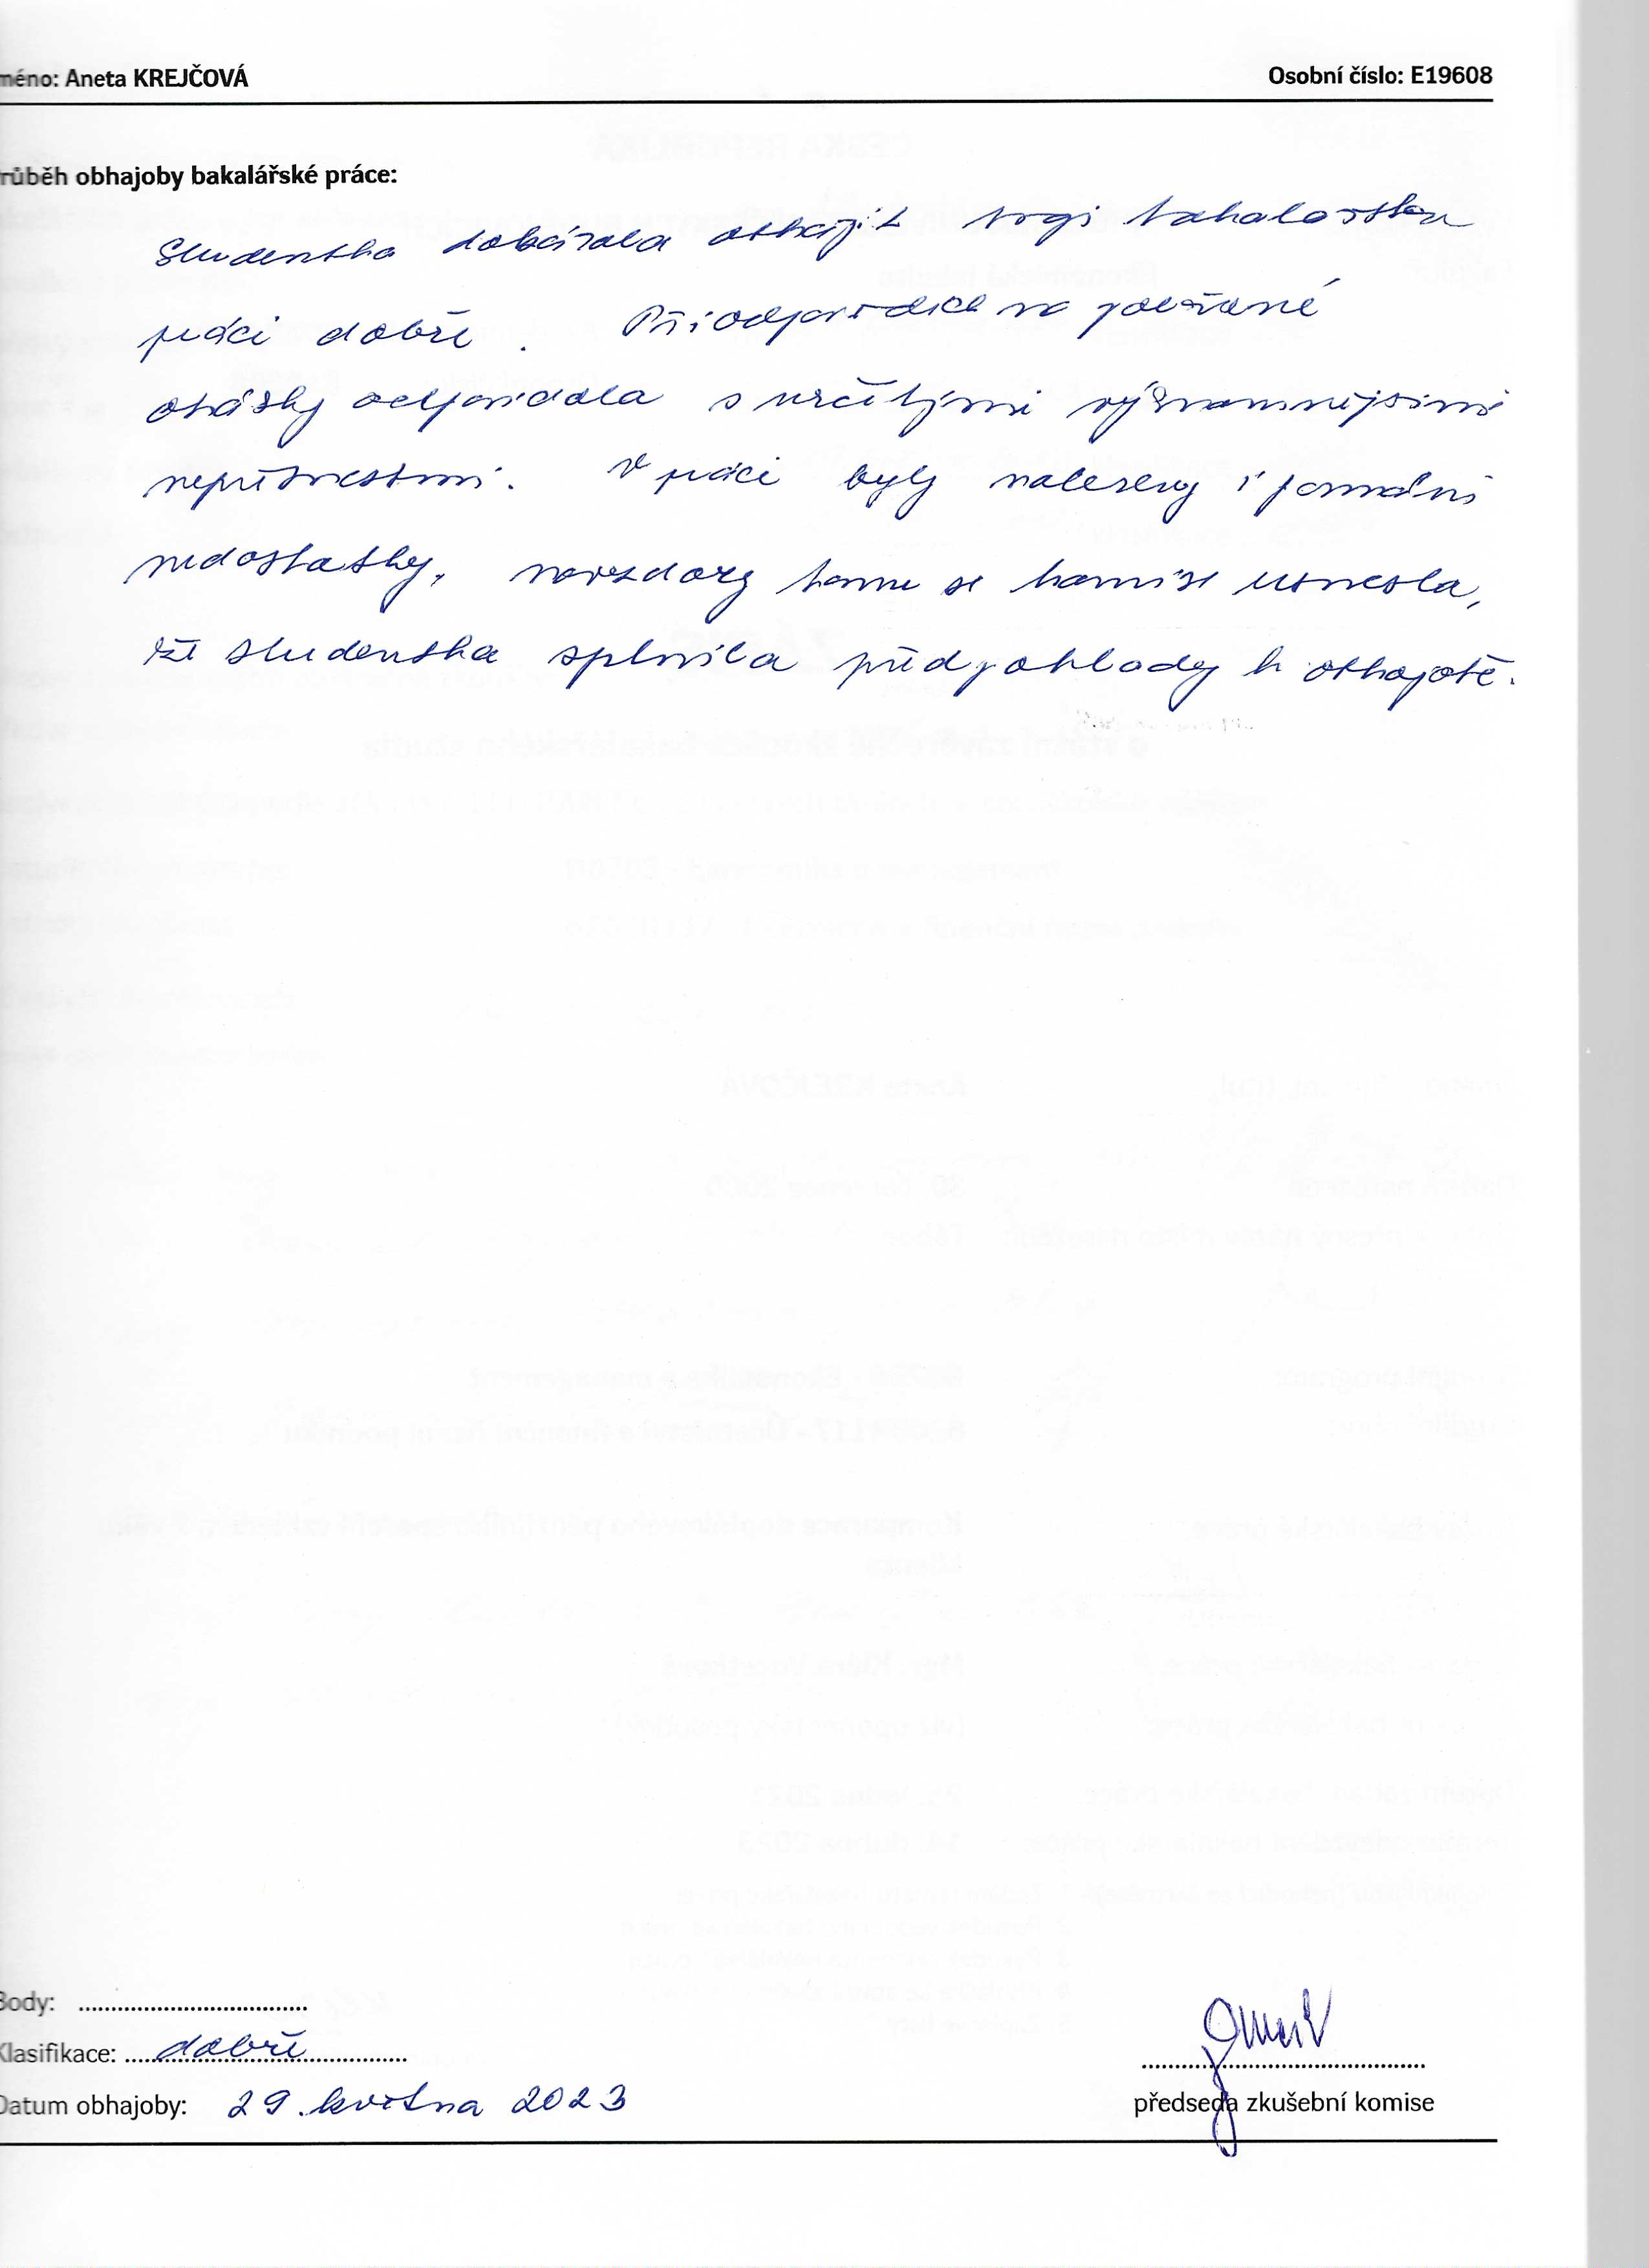 méno: Aneta KREJČOVÁ Osobní číslo: E19608
růběh obhajoby bakalářské práce:
Studentka dokázala obhájit svoji bakalářskou
práci dobře. Při odpovědích na položené
otázky odpovídala s určitými významnějšími
nepřesnostmi. V práci byly nalezeny i formální
nedostatky, navzdory tomu se komise usnesla,
že studentka splnila předpoklady k obhajobě.
Body: ..................................
Klasifikace: dobře
Datum obhajoby: 29. května 2023
předseda zkušební komise